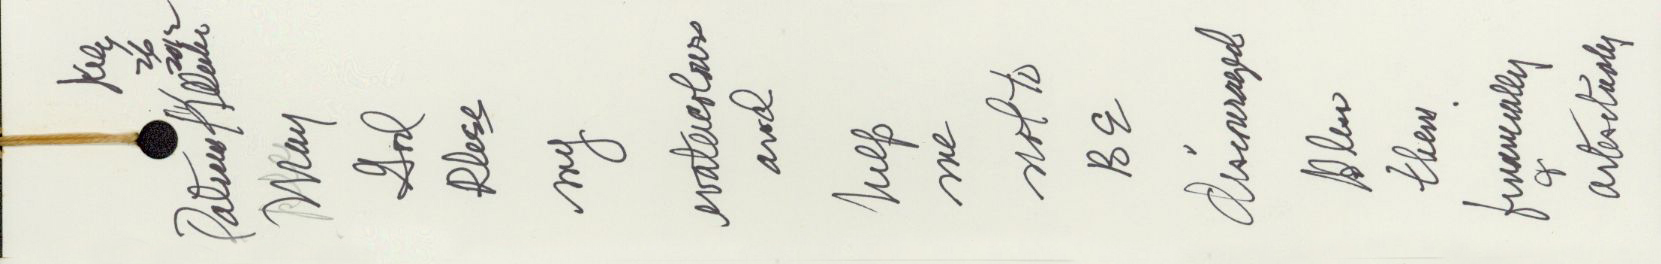 July
26
2012
May
God
Please
my
watercolours
and
help
me
not to
BE
discouraged
Bless
them.
financially
&
artistically